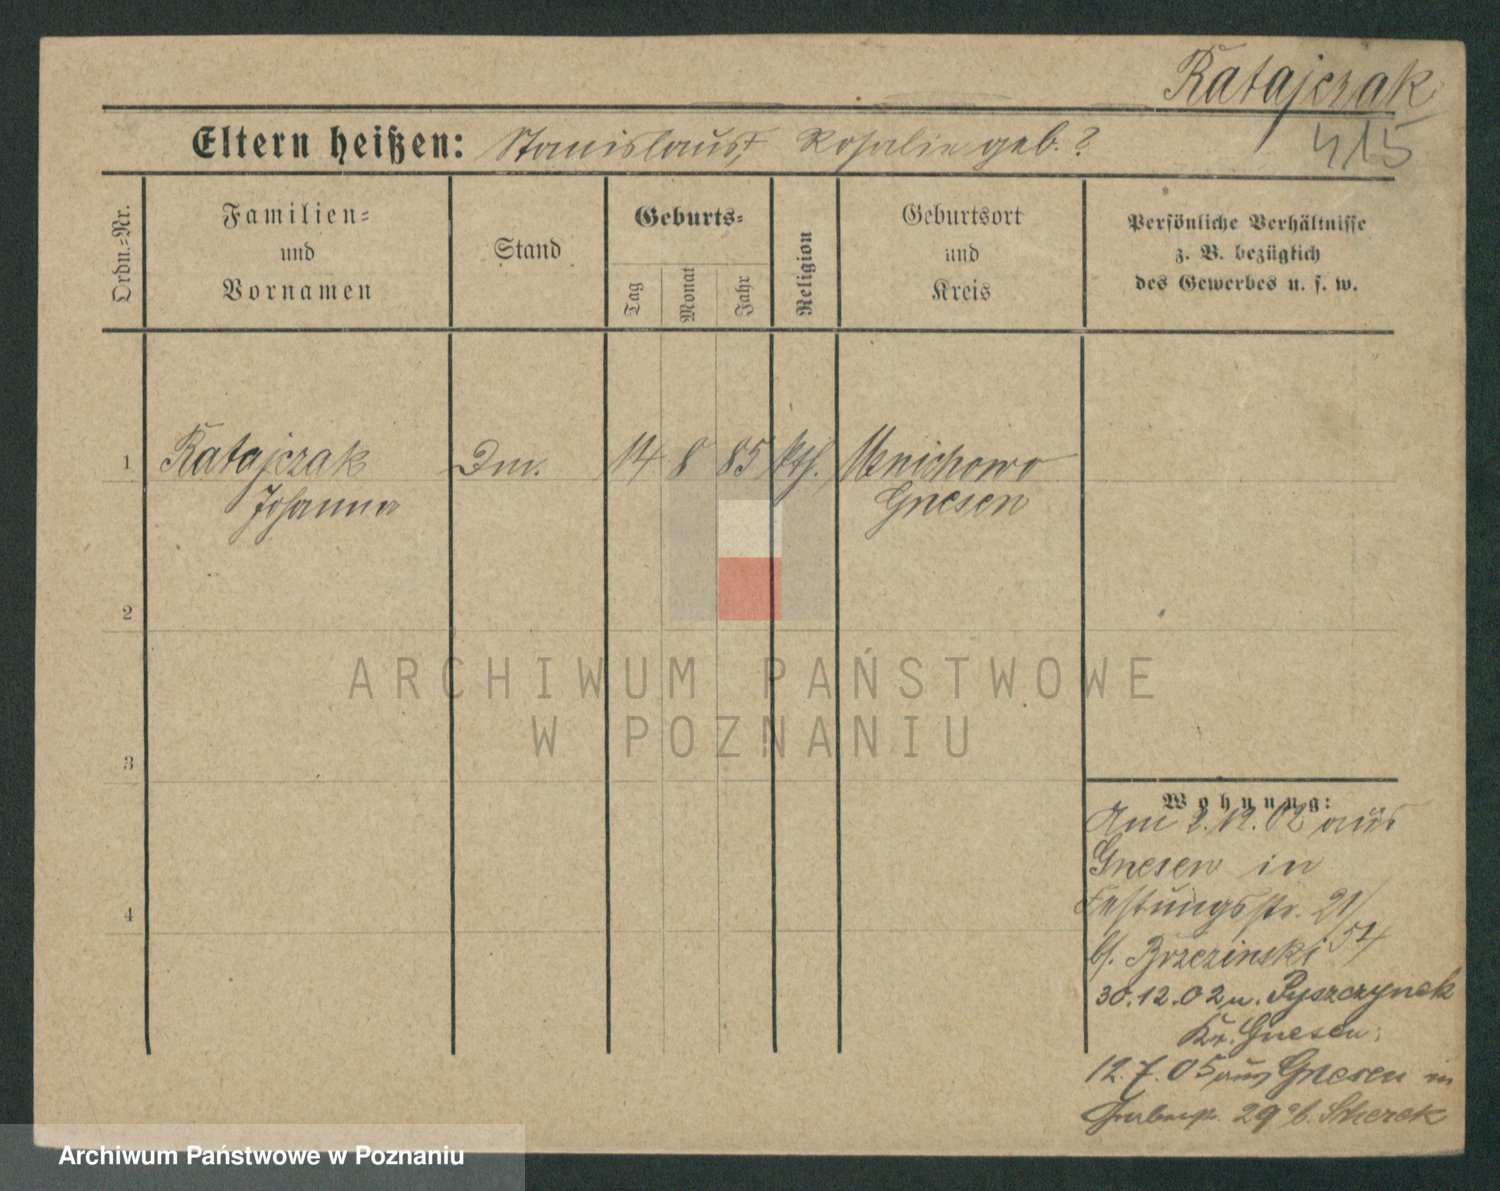 Ratajczak
415
Eltern heißen: Stanislaus†, Rosalie geb. ?
Ordn.=Nr.
Familien=
und
Vornamen
Stand
Geburts=
Tag
Monat
Jahr
Religion
Geburtsort
und
Kreis
Persönliche Verhältnisse
z. B. bezüglich
des Gewerbes u. s. w.
1 Ratajczak Dm. 14 8 85 kth. Mnichowo
Johanna Gnesen
2
3
4
ARCHIWUM PAŃSTWOWE
W POZNANIU
Wohnung:
Am 2.12.02 aus
Gnesen in
Festungsstr. 21/
b/. Brzezinski 54
30.12.02 n. Pyszczynek
Kr. Gnesen.
12.7.05 aus Gnesen in
29 b.
Archiwum Państwowe w Poznaniu